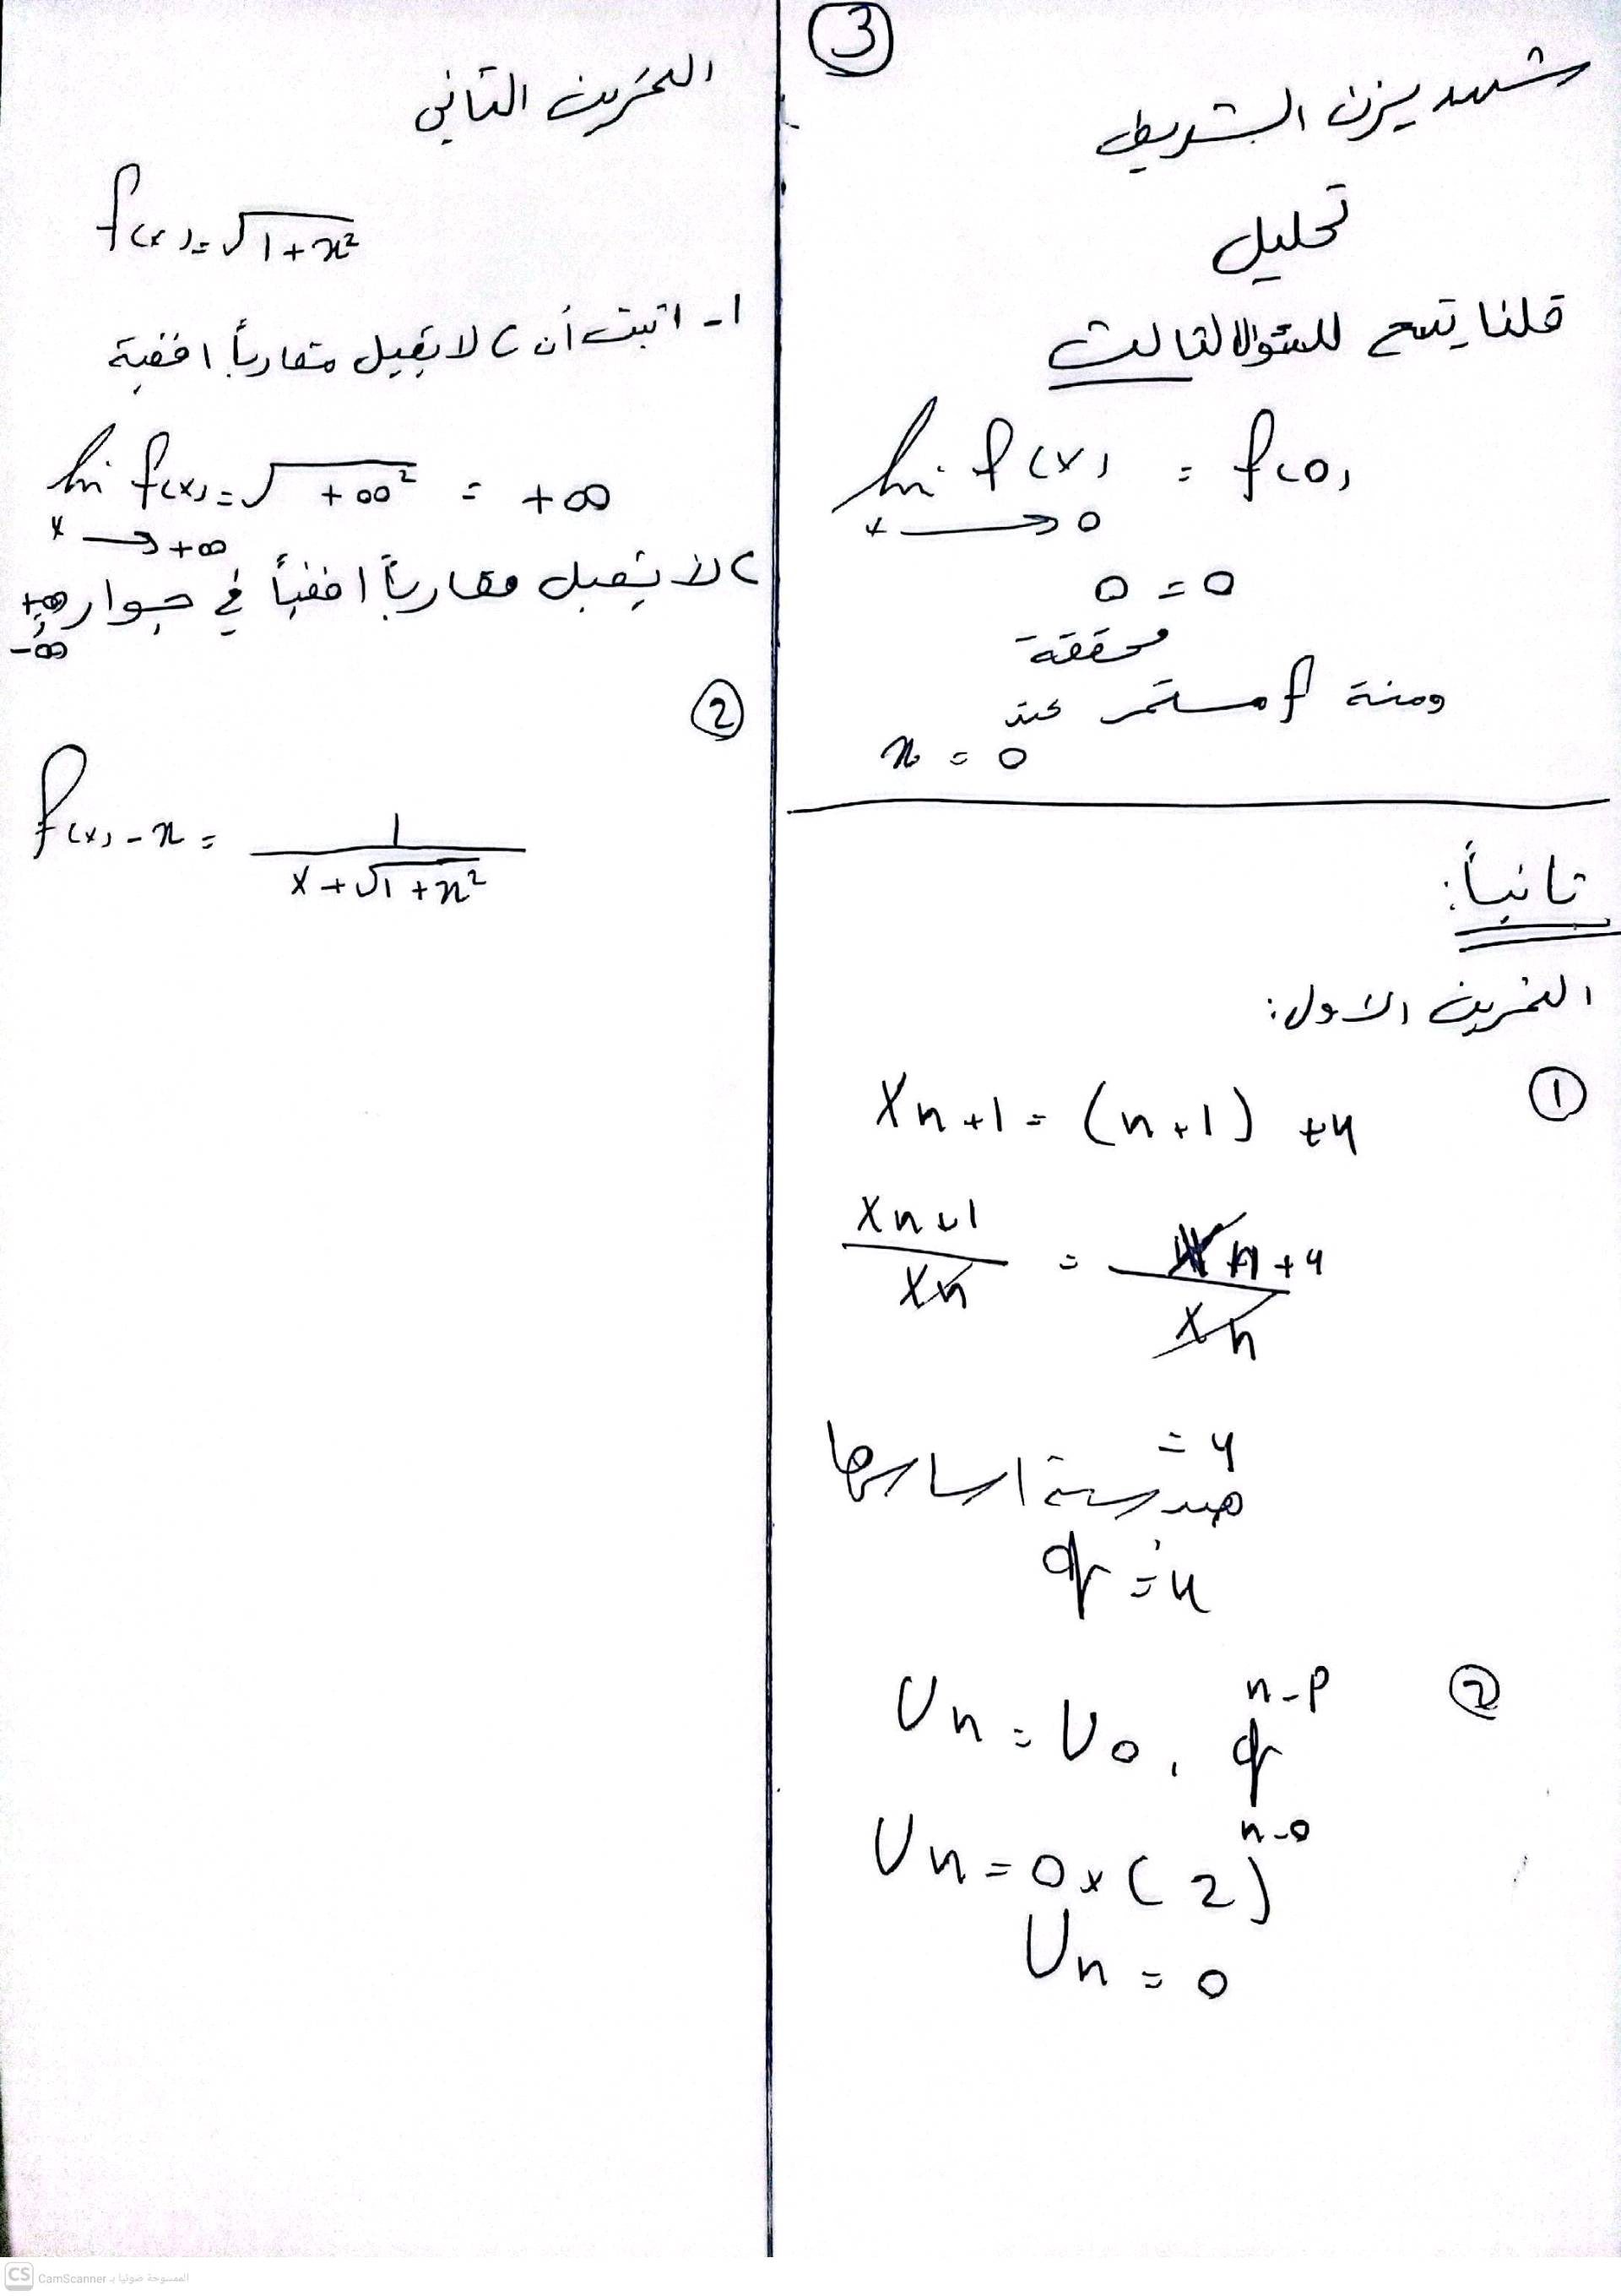 3
شهد يزن الشريطي
تحليل
قلنا يتبع للسؤال الثالث
lim f(x) = f(0)
x → 0
0 = 0
محققة
ومنة f مستمر عند
x = 0
ثانياً:
التمرين الاول:
1
Xn+1 = (n+1) +4
Xn+1 / Xn = n+4 / Xn
= 4
هندسية اساسها
q = 4
2
Un = U0 . q^n-p
Un = 0 × (2)^n-0
Un = 0
التمرين الثاني
f(x) = √1+x²
1- اثبت أن C لا يقبل مقارباً افقية
lim f(x) = √+∞² = +∞
x → +∞
C لا يقبل مقارباً افقياً في جوار +∞ و
-∞
2
f(x) - x = 1 / x+√1+x²
CS CamScanner الممسوحة ضوئيا بـ